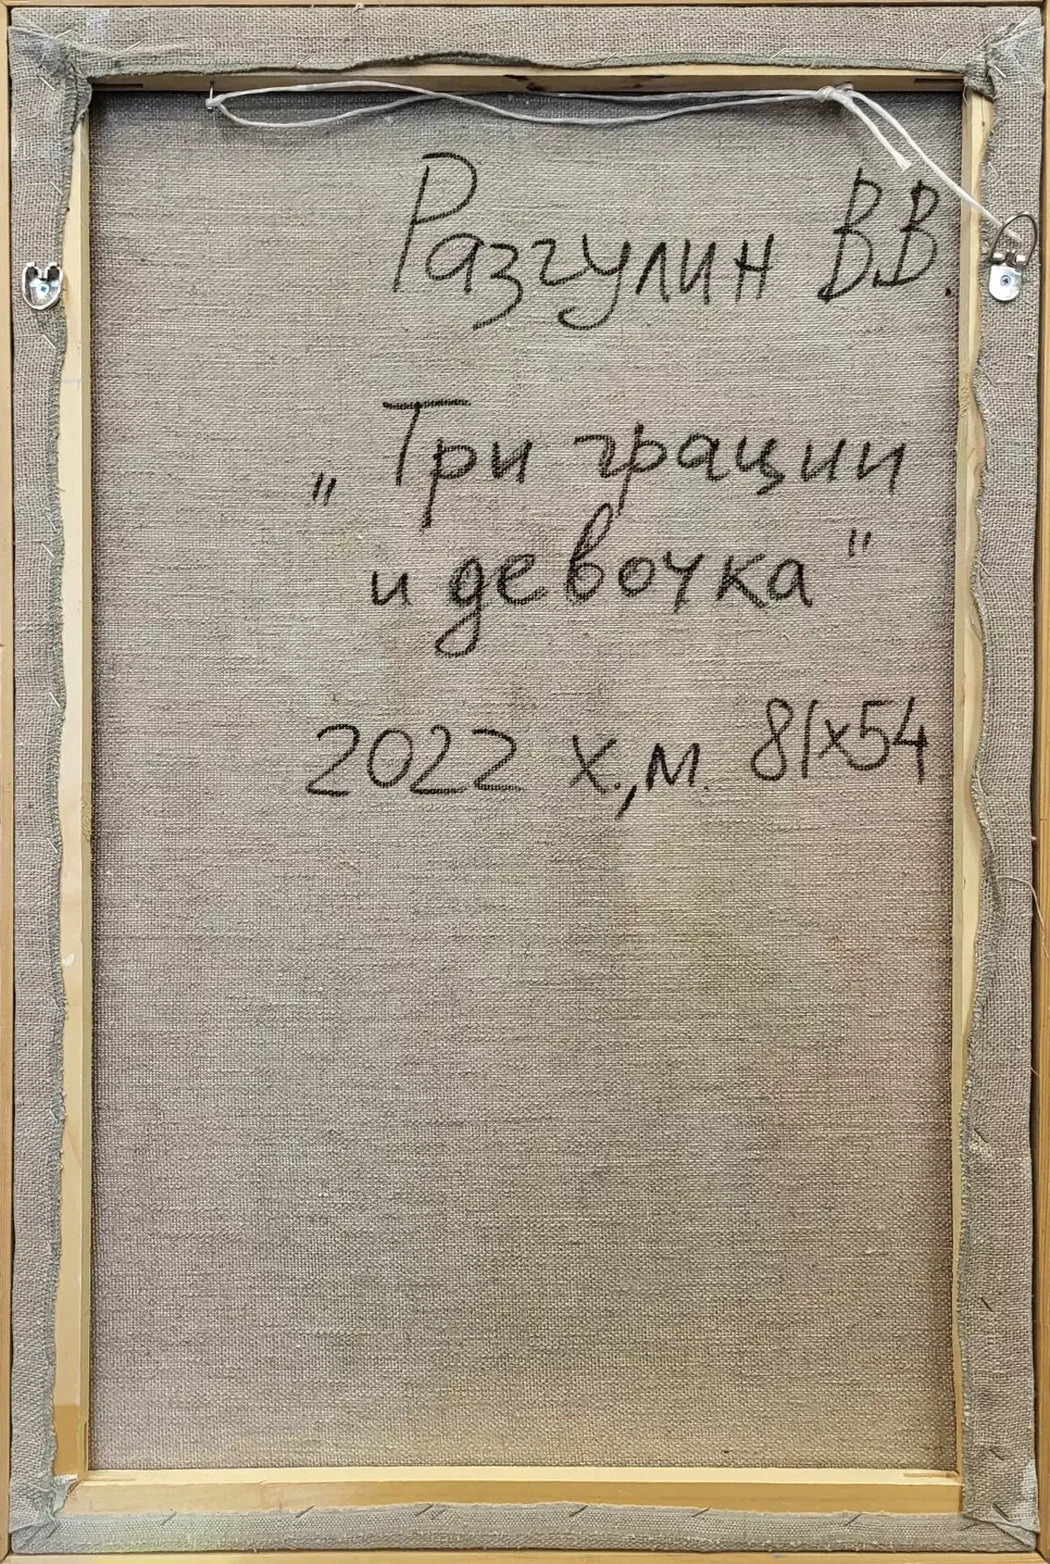 Разгулин В.В.
„Три грации
и девочка"
2022 х,м. 81х54